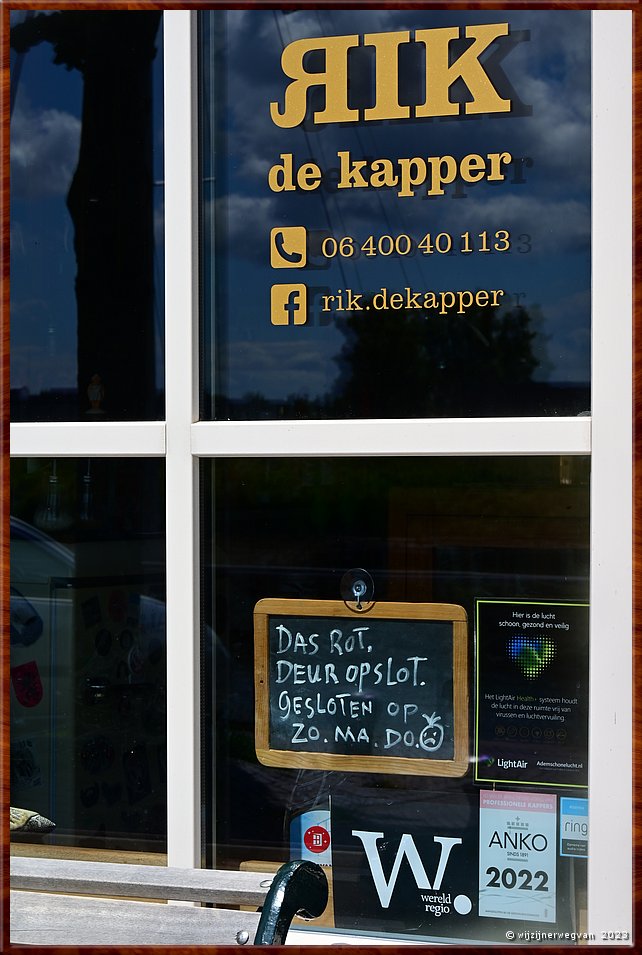 RIK
de kapper
06 400 40 113
rik.dekapper
DAS ROT,
DEUR OPSLOT.
GESLOTEN OP
ZO. MA. DO.
Hier is de lucht
schoon, gezond en veilig
Het LightAir Health+ systeem houdt
de lucht in deze ruimte vrij van
virussen en luchtvervuiling.
LightAir
Ademschonelucht.nl
PROFESSIONELE KAPPERS
ANKO
SINDS 1891
2022
ring
W.
wereld
regio
© wijzijnerwegvan 2023